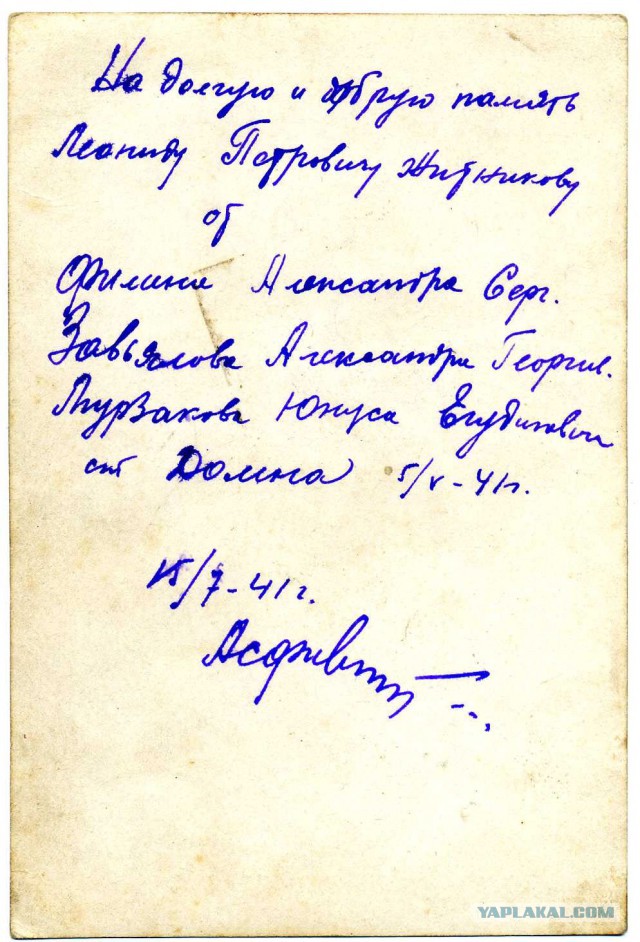 На долгую и добрую память
Леониду Петровичу Житникову
от
Филина Александра Серг.
Завьялова Александра Георгив.
Мурзакова Юнуса
ст Долина 5/V-41г.
15/7-41г.
YAPLAKAL.COM